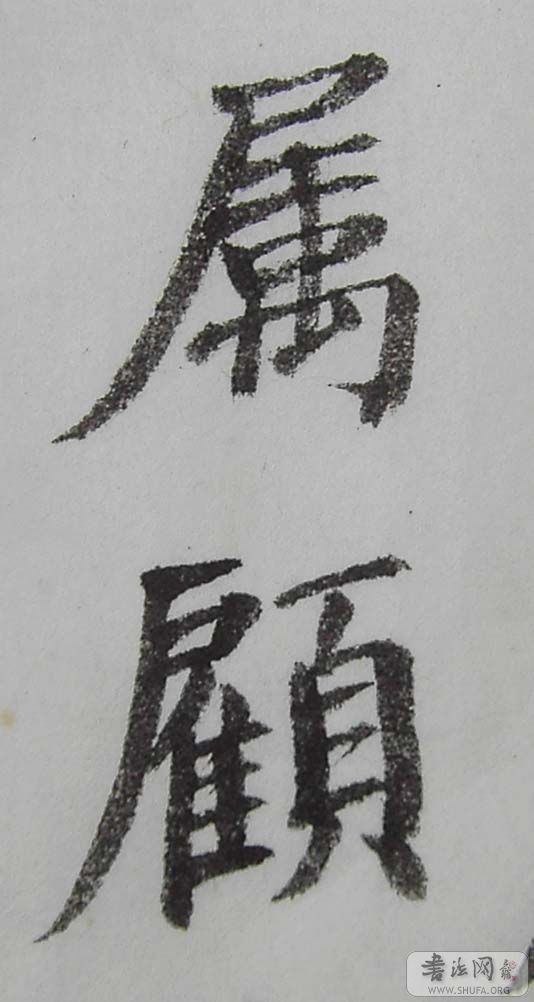 属
顧
书法网
WWW.SHUFA.ORG